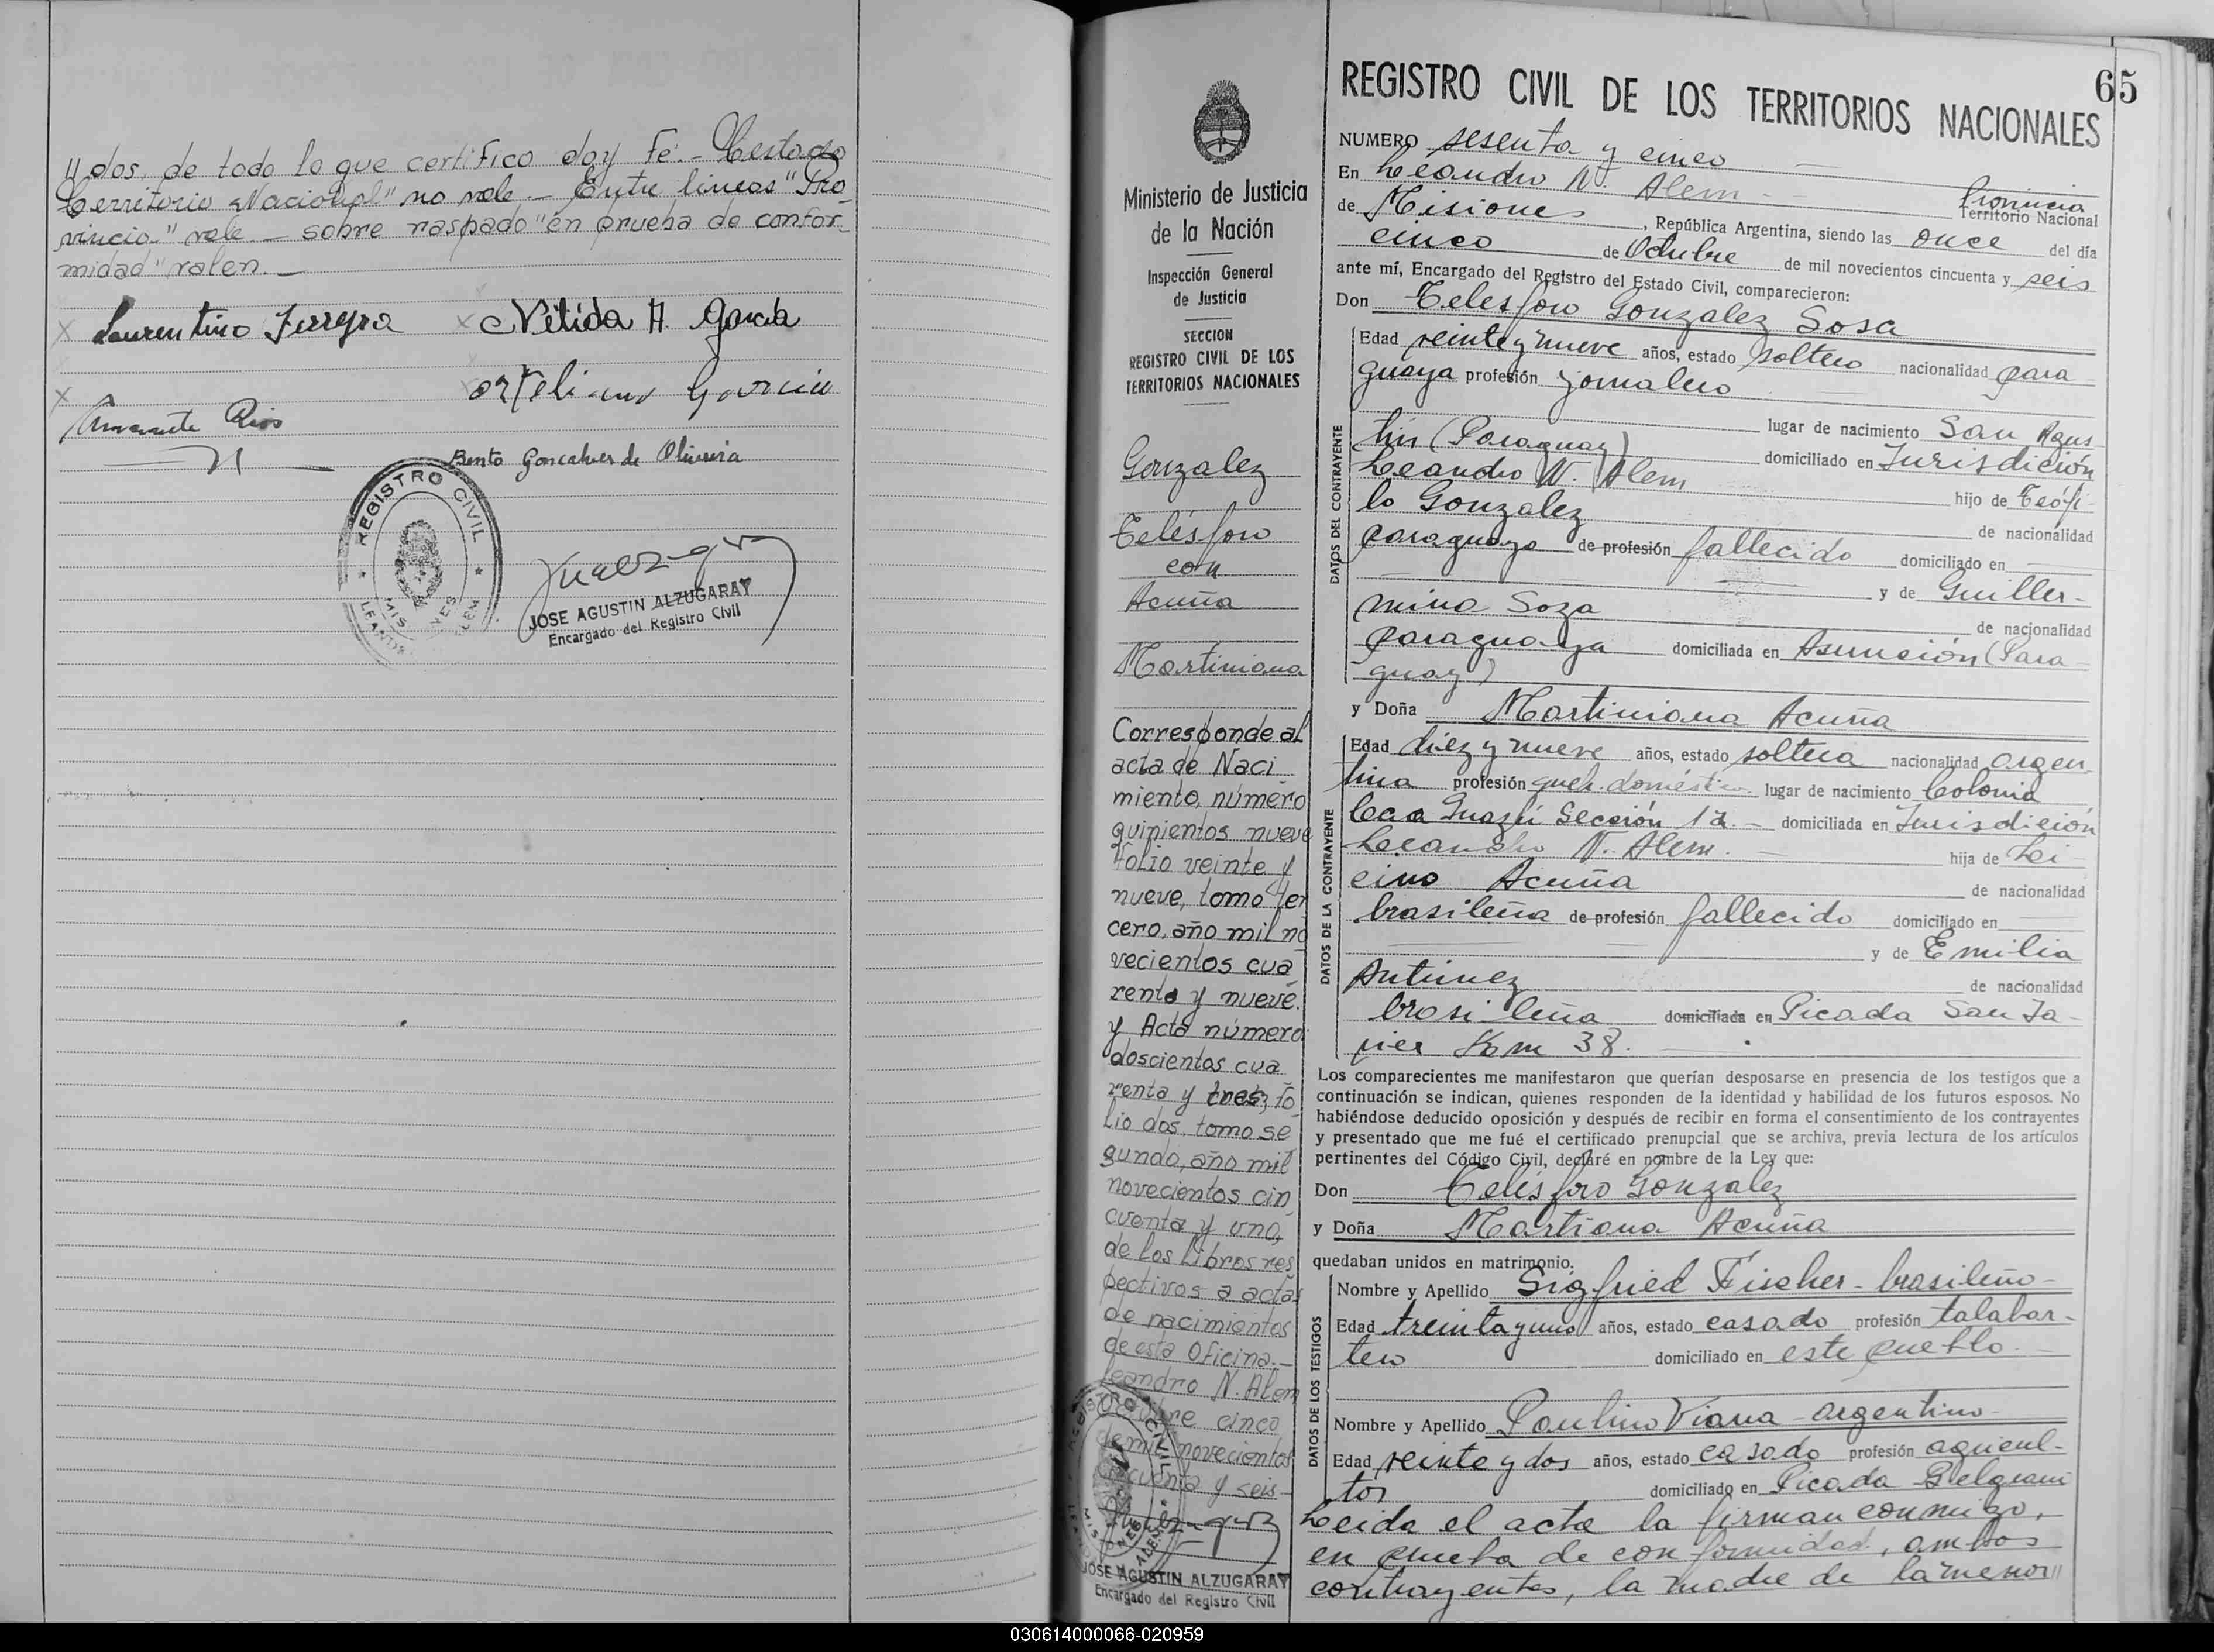 "dos, de todo lo que certifico doy fé.- Testado
Territorio Nacional" no vale.- Entre lineas "Pro
vincia-" vale.- sobre raspado "en prueba de confor-
midad" valen.-
Laurentino Ferreyra
Nélida A. Garcia
Garcia
Amarante Rios
Bento Goncalves de Oliveira
REGISTRO CIVIL
JOSE AGUSTIN ALZUGARAY
Encargado del Registro Civil
65
REGISTRO CIVIL DE LOS TERRITORIOS NACIONALES
Ministerio de Justicia
de la Nación
Inspección General
de Justicia
SECCION
REGISTRO CIVIL DE LOS
TERRITORIOS NACIONALES
Gonzalez
Telésforo
con
Acuña
Martiniana
Corresponde al
acta de Naci
miento, número
quinientos nueve
folio veinte y
nueve, tomo ter
cero, año mil no
vecientos cua
renta y nueve.
y Acta número
doscientos cua
renta y tres, fo
lio dos, tomo se
gundo, año mil
novecientos cin
cuenta y uno,
de los libros res
pectivos a actas
de nacimientos
de esta Oficina.-
Leandro N. Alem
Octubre cinco
de mil novecientos
cincuenta y seis-
JOSE AGUSTIN ALZUGARAY
Encargado del Registro Civil
NUMERO sesenta y cinco
En Leandro N. Alem - Provincia
de Misiones, República Argentina, siendo las once Territorio Nacional del día
cinco de Octubre de mil novecientos cincuenta y seis
ante mí, Encargado del Registro del Estado Civil, comparecieron:
Don Telesforo Gonzalez Sosa
DATOS DEL CONTRAYENTE
Edad veinte y nueve años, estado soltero nacionalidad para
guaya profesión jornalero
lugar de nacimiento San Agus-
tin (Paraguay) domiciliado en Jurisdición
Leandro N. Alem hijo de Teófi-
lo Gonzalez de nacionalidad
paraguaya de profesión fallecido domiciliado en
y de Guiller-
mina Soza de nacionalidad
paraguaya domiciliada en Asunción (Para-
guay)
y Doña Martiniana Acuña
DATOS DE LA CONTRAYENTE
Edad diez y nueve años, estado soltera nacionalidad argen-
tina profesión queh. doméstic lugar de nacimiento Colonia
Caa Guazú Sección 1a.- domiciliada en Jurisdición
Leandro N. Alem.- hija de Lei-
cino Acuña de nacionalidad
brasileña de profesión fallecido domiciliado en
y de Emilia
Antunez de nacionalidad
brasileña domiciliada en Picada San Ja-
vier Km 38.-
Los comparecientes me manifestaron que querían desposarse en presencia de los testigos que a
continuación se indican, quienes responden de la identidad y habilidad de los futuros esposos. No
habiéndose deducido oposición y después de recibir en forma el consentimiento de los contrayentes
y presentado que me fué el certificado prenupcial que se archiva, previa lectura de los artículos
pertinentes del Código Civil, declaré en nombre de la Ley que:
Don Telésforo Gonzalez
y Doña Martiana Acuña
quedaban unidos en matrimonio.
DATOS DE LOS TESTIGOS
Nombre y Apellido Sigfried Fischer - brasileño-
Edad treintayuno años, estado casado profesión talabar-
tero domiciliado en este pueblo.-
Nombre y Apellido Paulino Viana - argentino-
Edad veinte y dos años, estado casado profesión agricul-
tor domiciliado en Picada Belgrano
Leida el acta la firman conmigo,
en prueba de conformidad, ambos
contrayentes, la madre de la menor"
030614000066-020959